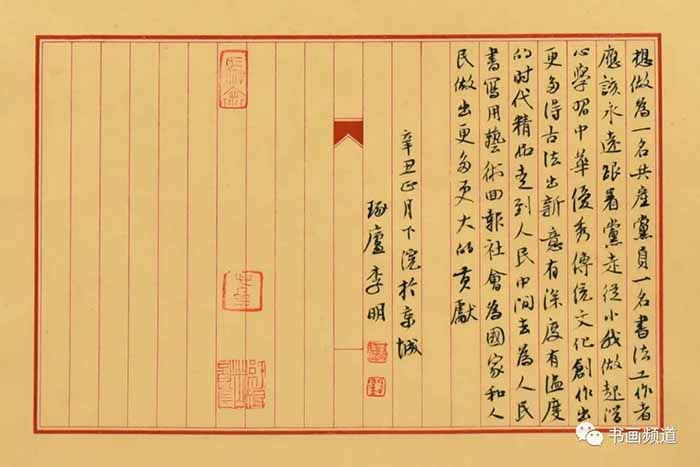 想做為一名共產黨員一名書法工作者
應該永遠跟着黨走從小我做起潛
心學習中華優秀傳統文化創作出
更多得古法出新意有深度有溫度
的时代精品走到人民中间去為人民
書寫用藝術回報社會為國家和人
民做出更多更大的貢獻
辛丑正月下浣於京城
琢廬李明
书画频道